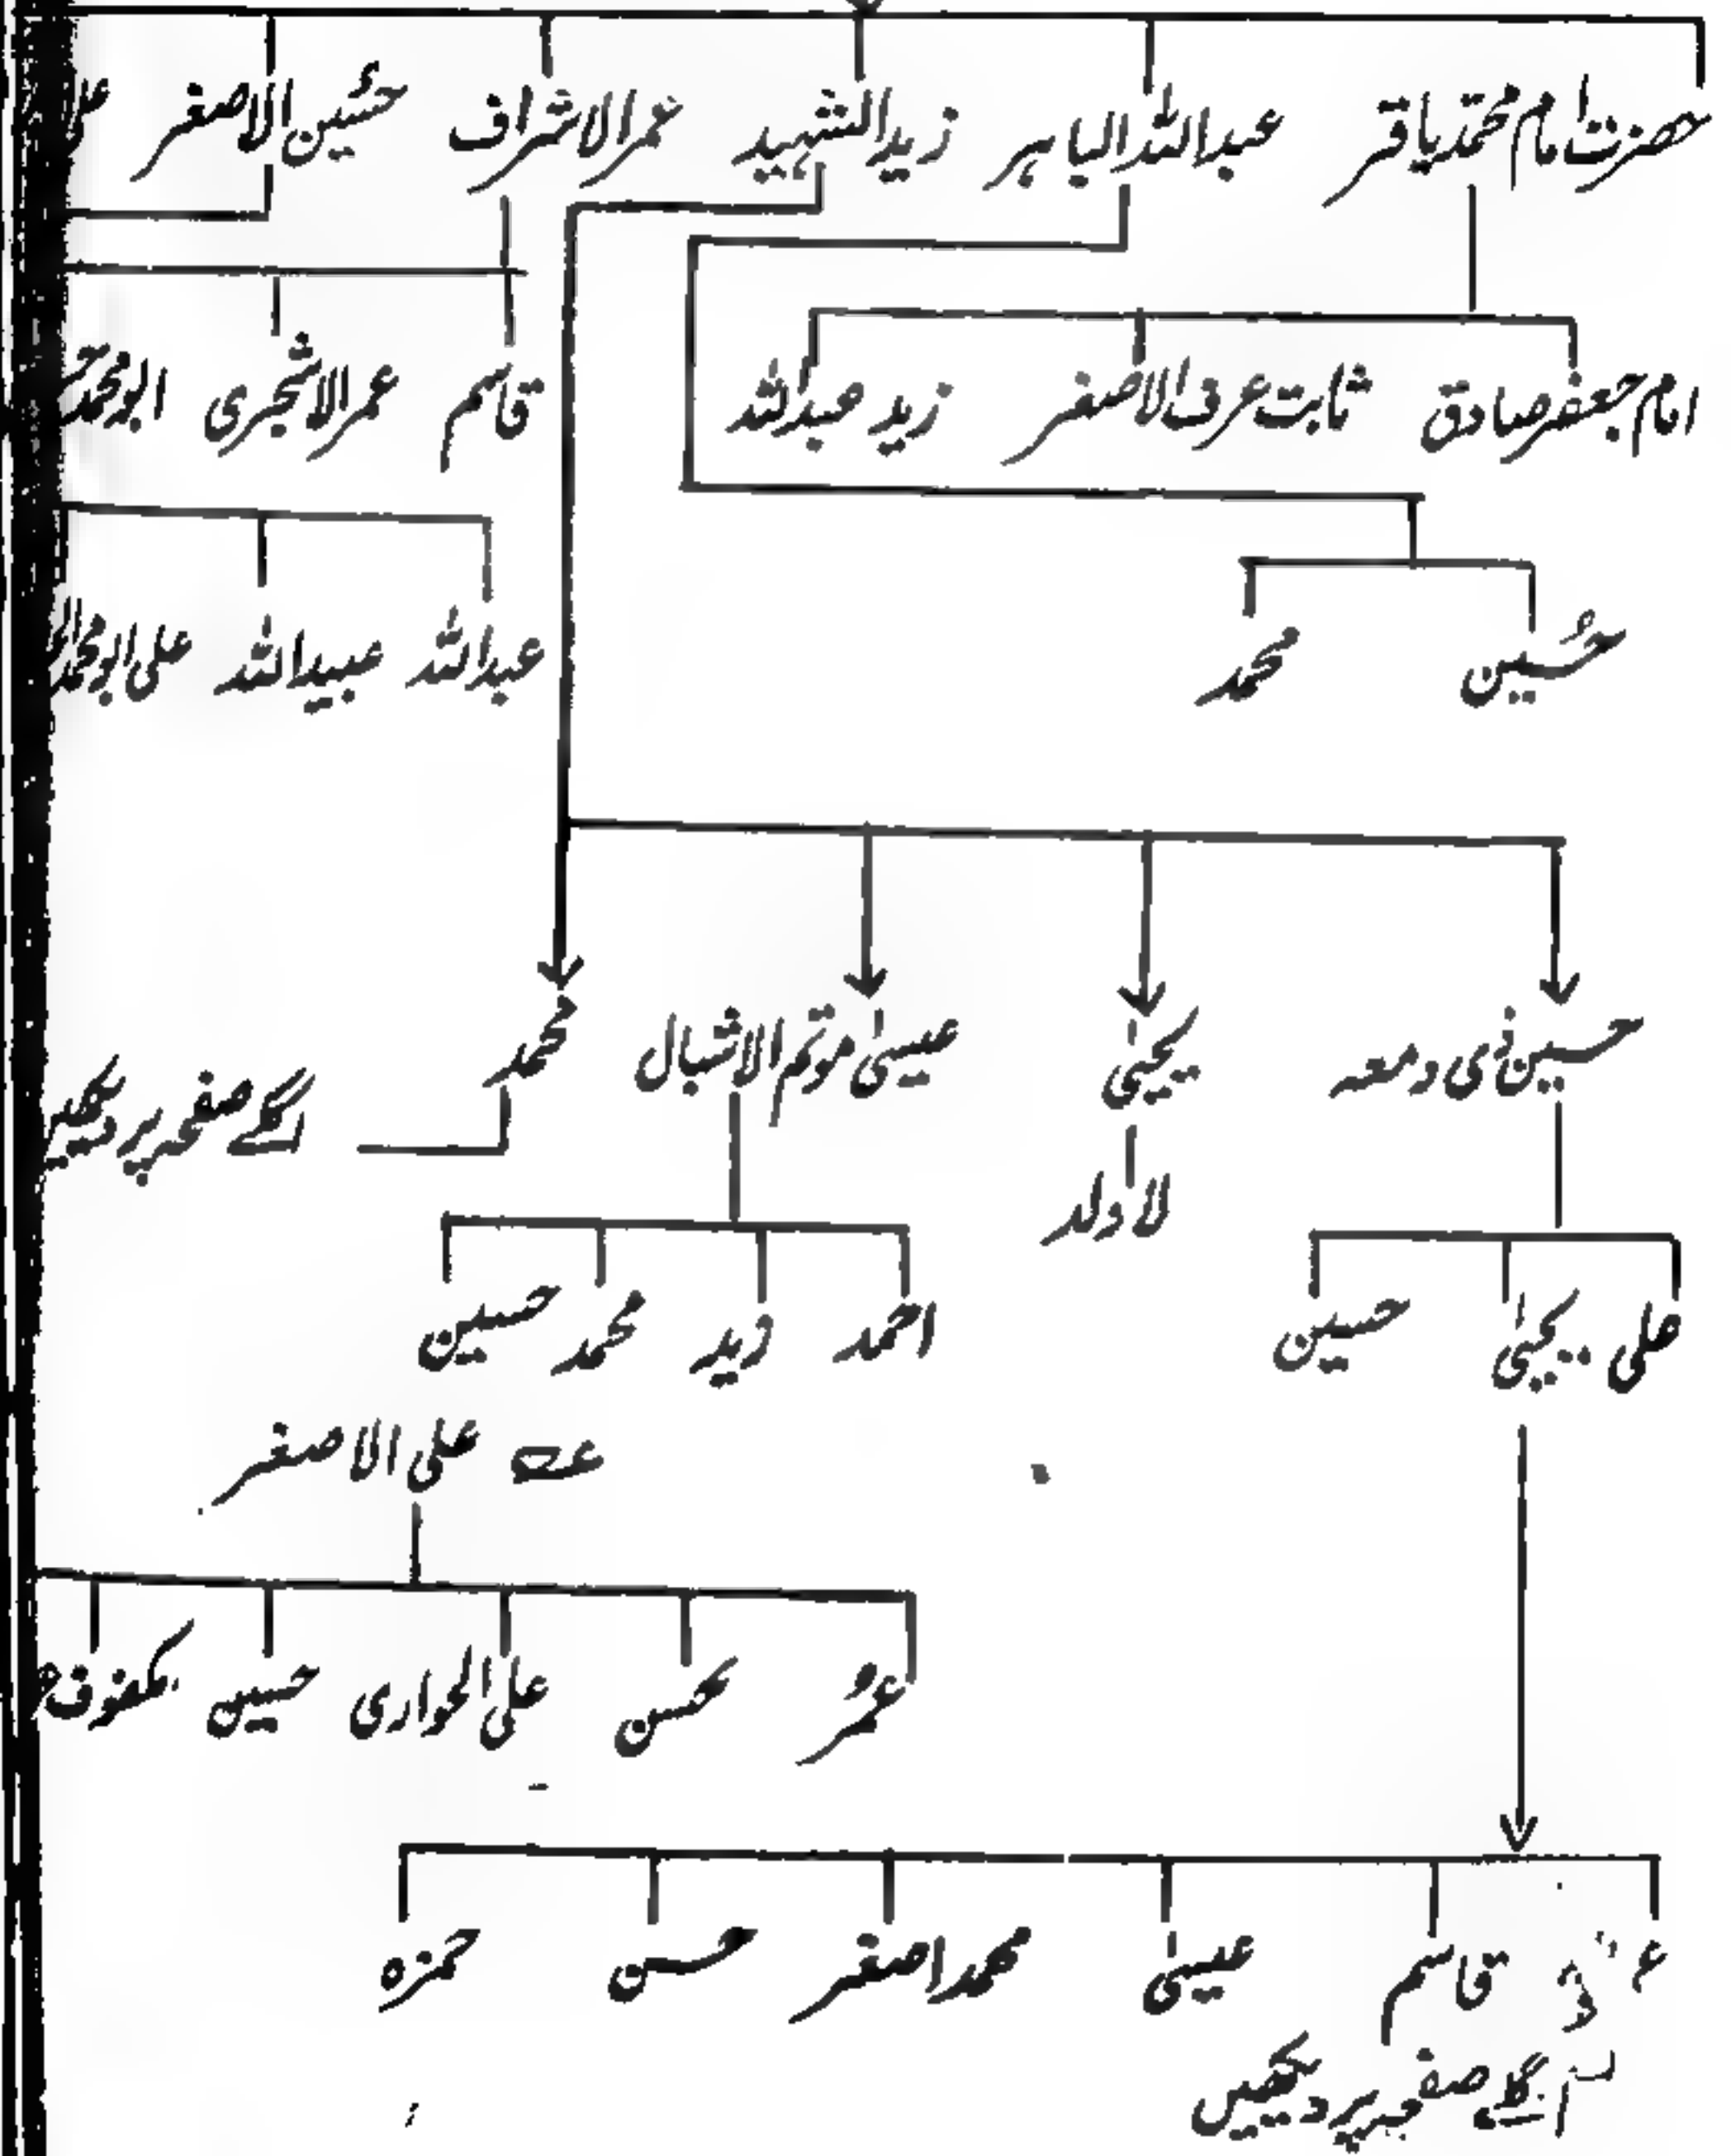 حضرت امام محمد باقر عبداللہ الباہر زید الشہید عمر الاشراف حسین الاصغر
امام جعفر صادق ثابت عرف الاصغر زید عبداللہ قاسم عمر الاشجری
حسین محمد عبداللہ عبیداللہ
حسین ذی دمعہ یحییٰ عیسیٰ موتم الاشبال محمد
اگلے صفحہ پر
لا ولد
علی یحییٰ حسین احمد زید محمد حسین
علی الاصغر
علی الحواری حسین
قاسم عیسیٰ محمد اصغر حسن حمزہ
آگے صفحہ پر دیکھیں